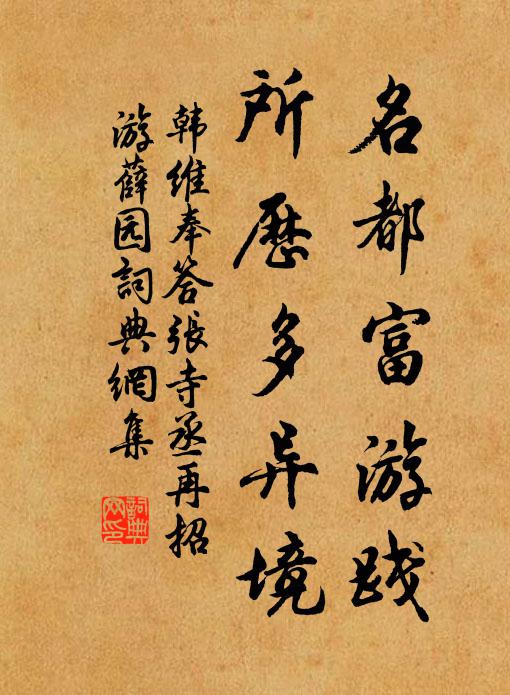 名都富游践
所歷多异境
韩維奉答張寺丞再招
游薛园詞典網集
詞典网印